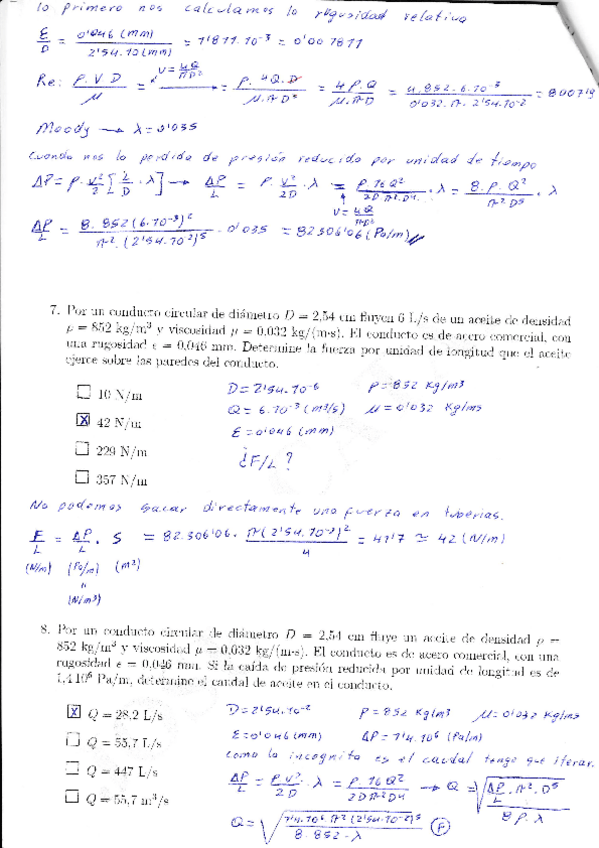 lo primero nos calculamos la rugosidad relativa
ε/D = 0'046 (mm) / 2'54.10 (mm) = 1'811.10⁻³ = 0'001811
Re: ρ.V.D / μ = V=4Q/πD² → = ρ.4Q.D / μ.π D² = 4ρ.Q / μ.π.D = 4.852.6.10⁻³ / 0'032.π.2'54.10⁻² = 8007'9
Moody → λ=0'035
Cuando nos la perdida de presión reducida por unidad de tiempo
ΔP = ρ.V²/2 [L/D . λ] → ΔP/L = ρ.V²/2D . λ = ρ.16Q²/2D π².D⁴ . λ = 8.ρ.Q²/π² D⁵ . λ
V=4Q/πD²
ΔP/L = 8.852(6.10⁻³)² / π².(2'54.10⁻²)⁵ . 0'035 = 82306'06 (Pa/m)
7. Por un conducto circular de diámetro D = 2,54 cm fluyen 6 L/s de un aceite de densidad
ρ = 852 kg/m³ y viscosidad μ = 0,032 kg/(m·s). El conducto es de acero comercial, con
una rugosidad ϵ = 0,046 mm. Determine la fuerza por unidad de longitud que el aceite
ejerce sobre las paredes del conducto.
10 N/m
X 42 N/m
229 N/m
357 N/m
D = 2'54.10⁻⁶ ρ = 852 Kg/m³
Q = 6.10⁻³ (m³/s) μ = 0'032 Kg/ms
ε = 0'046 (mm)
¿F/L?
No podemos sacar directamente una fuerza en tuberias.
F/L = ΔP/L . S = 82.306'06 . π(2'54.10⁻²)²/4 = 41'7 ≃ 42 (N/m)
(N/m) (Pa/m) (m²)
"
(N/m³)
8. Por un conducto circular de diámetro D = 2,54 cm fluye un aceite de densidad ρ =
852 kg/m³ y viscosidad μ = 0,032 kg/(m·s). El conducto es de acero comercial, con una
rugosidad ϵ = 0,046 mm. Si la caída de presión reducida por unidad de longitud es de
1,4 10⁶ Pa/m, determine el caudal de aceite en el conducto.
X Q = 28,2 L/s
Q = 55,7 L/s
Q = 447 L/s
Q = 55,7 m³/s
D = 2'54.10⁻² ρ = 852 Kg/m³ μ = 0'032 Kg/ms
ε = 0'046 (mm) ΔP = 1'4.10⁶ (Pa/m)
como la incognita es el caudal tengo que iterar.
ΔP/L = ρ.V²/2D . λ = ρ.16Q²/2D π² D⁴ → Q = √(ΔP/L . π² . D⁵ / 8ρ.λ)
Q = √(1'4.10⁶ π² (2'54.10⁻²)⁵ / 8.852.λ)